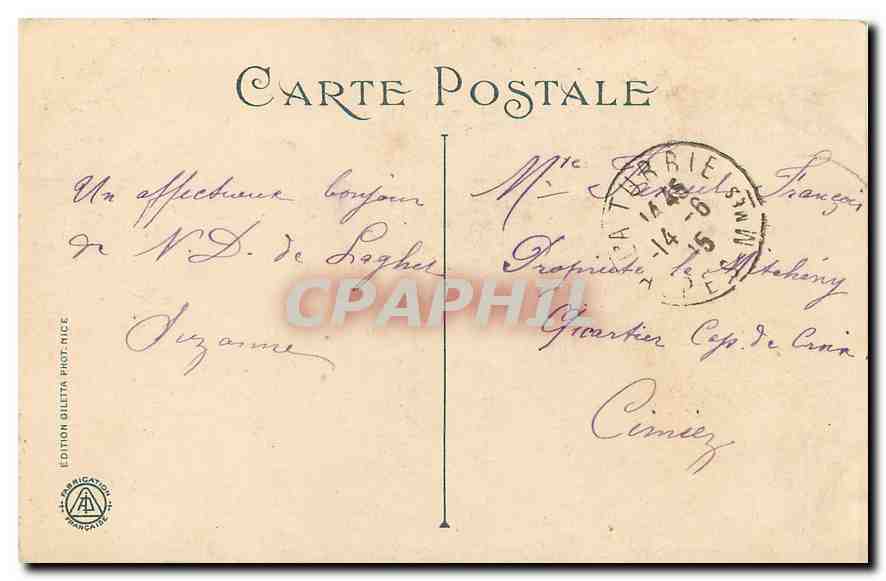 CARTE POSTALE
Un affectueux bonjour
de N. D. de Laghet
Suzanne
Mr François
Propriété la
Quartier Cap. de Croix
Cimiez
LA TURBIE
14
-6
15
ALPES Mmes
CPAPHIL
EDITION GILETTA PHOT. NICE
FABRICATION
FRANÇAISE